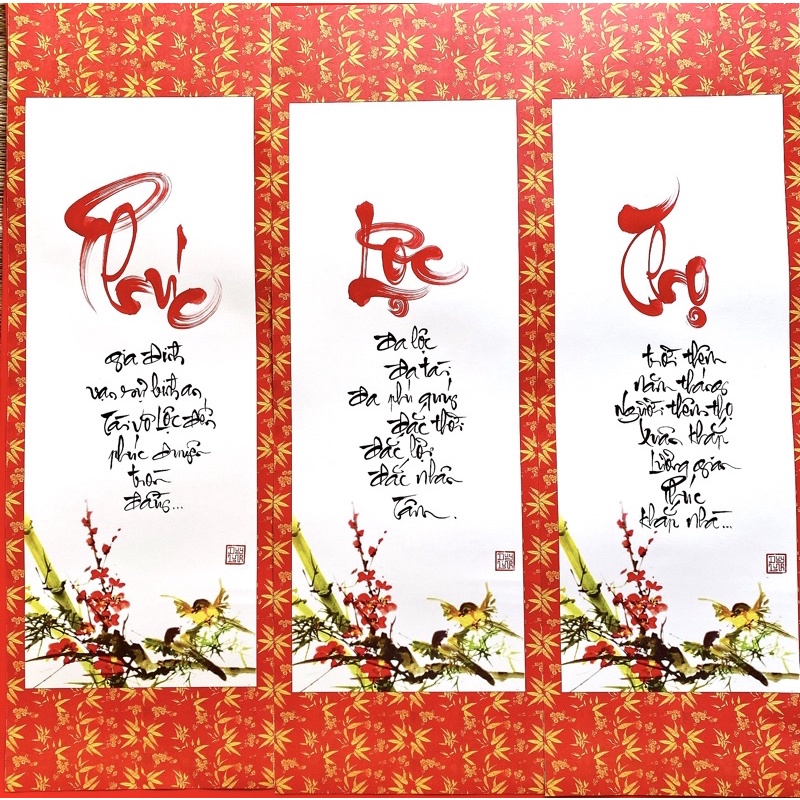 Phúc
gia đình
vạn sự bình an
Tài vô Lộc đến
phúc duyên
tròn
đầy...
Lộc
Đa lộc
Đa tài
Đa phú quý
Đắc thời
Đắc lợi
Đắc nhân
Tâm.
Thọ
trời thêm
năm tháng
Người thêm thọ
Xuân khắp
dương gian
Phúc
khắp nhà...